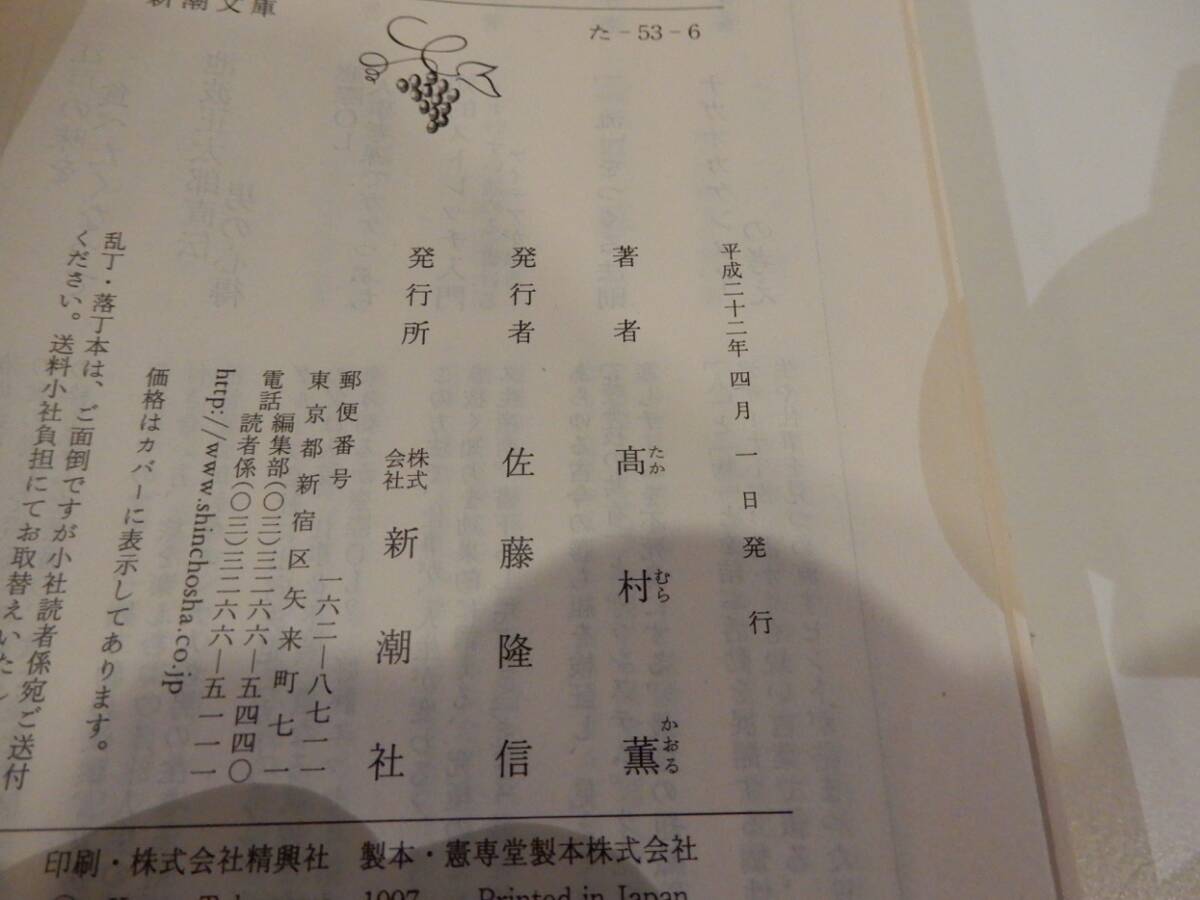 新潮文庫
た-53-6
平成二十二年四月一日発行
著者 髙村薫
たか むら かおる
発行者 佐藤隆信
発行所 株式会社 新潮社
郵便番号 一六二―八七一一
東京都新宿区矢来町七一
電話 編集部(〇三)三二六六―五四四〇
読者係(〇三)三二六六―五一一一
http://www.shinchosha.co.jp
価格はカバーに表示してあります。
乱丁・落丁本は、ご面倒ですが小社読者係宛ご送付
ください。送料小社負担にてお取替えいたし
印刷・株式会社精興社 製本・憲専堂製本株式会社
1997 Printed in Japan